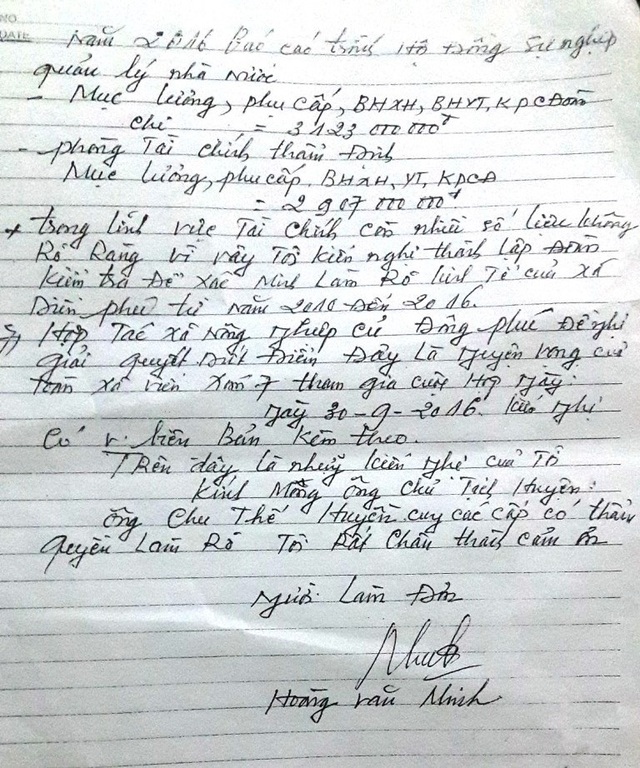 NO
DATE
Năm 2016 Báo cáo trình Hội Đồng sự nghiệp
quản lý nhà nước
- Mục lương, phụ cấp, BHXH, BHYT, KPCĐoàn
chi = 3123 000 000đ
- phòng Tài chính thẩm định
Mục lương, phụ cấp. BHXH, YT, KPCĐ
= 2 907 000 000đ
+ trong lĩnh vực Tài chính còn nhiều số liệu không
Rõ Ràng vì vậy Tôi kiến nghị thành lập Đoàn
kiểm tra Để xác Minh Làm Rõ kinh Tế của xã
Diễn phú từ năm 2010 Đến 2016.
Hợp Tác xã Nông Nghiệp cũ Đông phú Đề nghị
giải quyết Dứt Điểm Đây Là Nguyện vọng của
toàn xã viên xóm 7 tham gia cuộc Họp Ngày:
Ngày 30-9-2016. kiến nghị
Có biên Bản kèm theo.
Trên đây là những kiến nghị của Tôi
Kính Mong ông Chủ Tịch Huyện:
ông Chu Thế Huyền cùng các cấp có thẩm
quyền Làm Rõ Tôi Rất Chân thành cảm ơn
Người Làm Đơn
Hoàng Văn Minh